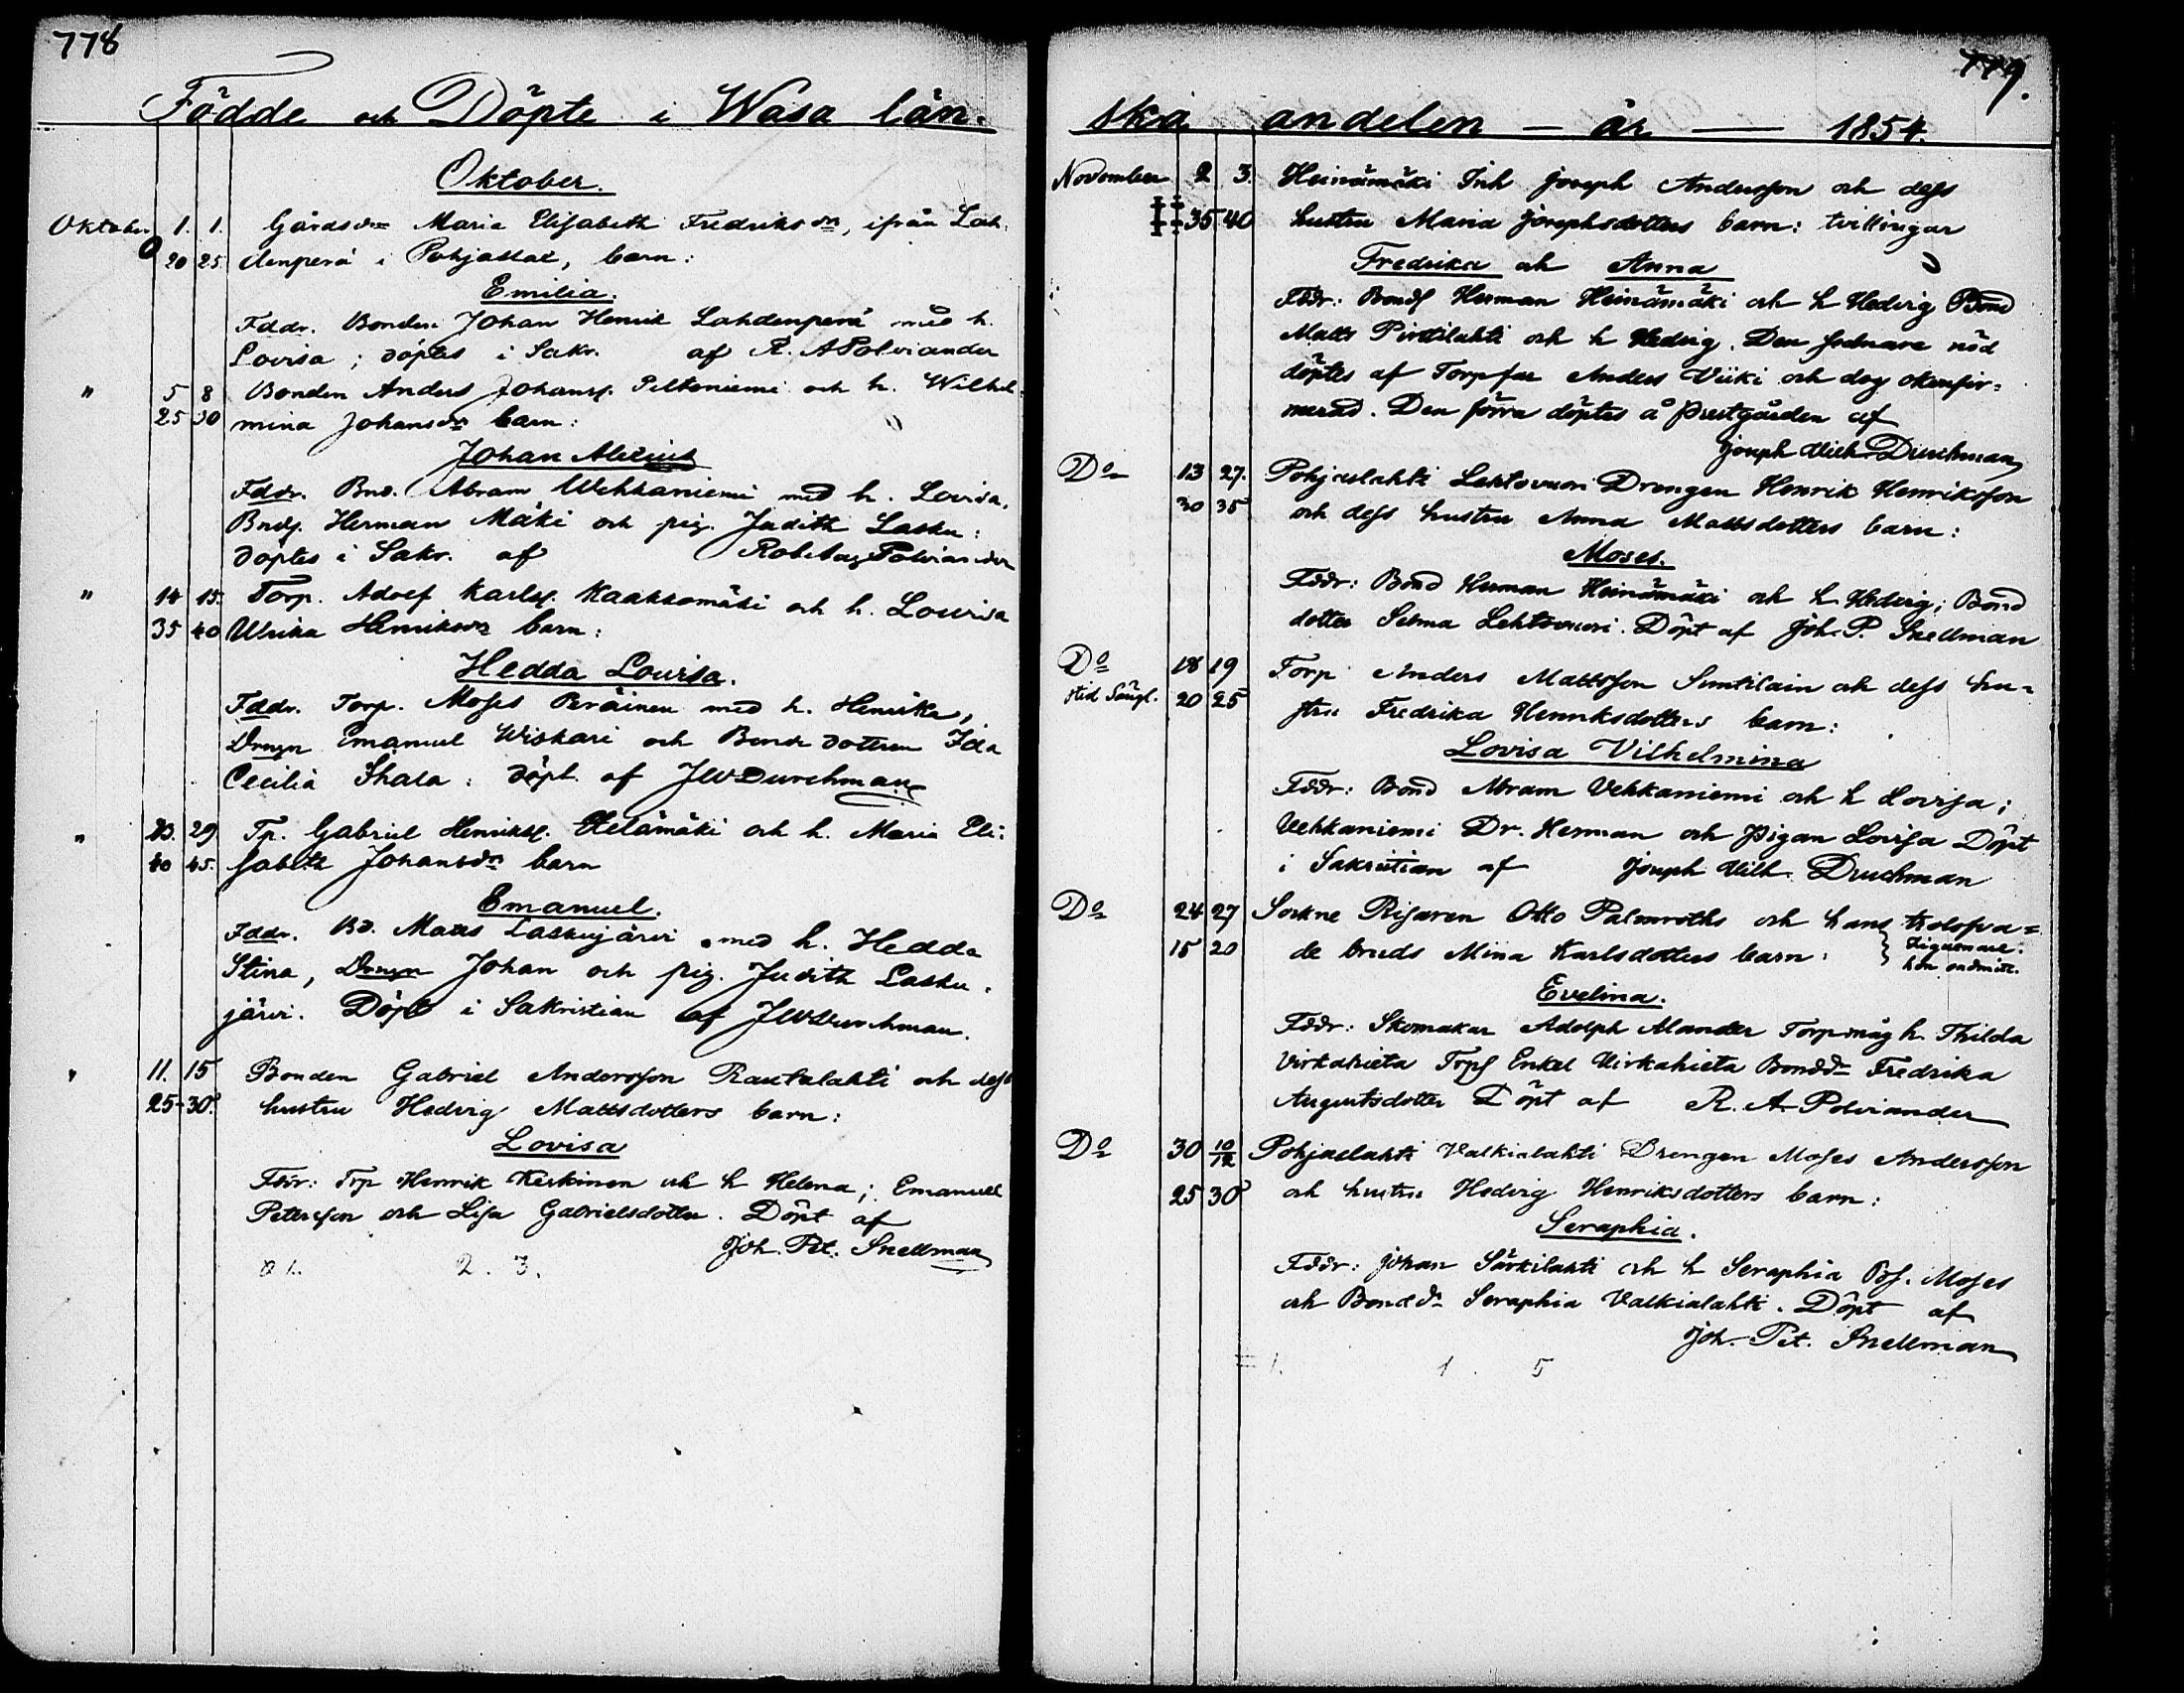 778
Födde och Döpte i Wasa län-
Oktober.
Oktober 1. 1. Gårdsdr Maria Elisabeth Fredriksdr, ifrån Lah-
20 25 denperä i Pohjaslat, barn:
Emilia.
Fddr. Bonden Johan Henrik Lahdenperä med h.
Lovisa; döptes i Sakr. af R. A Polviander
" 5 8 Bonden Anders Johanss. Peltoniemi och h. Wilhel-
25 30 mina Johansdr barn:
Johan
Fddr. Bnd. Abram Wehkaniemi med h. Lovisa,
Bnds. Herman Mäki och pig. Judith Lasku:
döptes i Sakr. af Rob Aug Polviander
" 14 15. Torp. Adolf Karlss. Kaakkomäki och h. Lovisa
35 40 Ulrika Henriksdr barn:
Hedda Lovisa.
Fddr. Torp. Moses Peräinen med h. Henrika,
Drngn Emanuel Wiskari och Bonde dottern Ida
Cecilia Ihala: döpt. af JWDurchman
" 23. 29 Tp. Gabriel Henrikss. Helämäki och h. Maria Eli:
40 45. sabeth Johansdr barn
Emanuel.
Fddr. Bd. Matts Laskujärvi med h. Hedda
Stina, Drngn Johan och pig. Judith Lasku-
järvi. Döpt i Sakristian af JWDurchman.
" 11. 15 Bonden Gabriel Andersson Rautalahti och dess
25-30. hustru Hedvig Mattsdotters barn:
Lovisa
Fddr: Trp Henrik Keskinen och h Helena; Emanuel
Petersson och Lisa Gabrielsdotter. Döpt af
Joh. Pet. Snellman
2. 3.
779.
ska andelen — år — 1854.
November 2 3. Heinämäki Inh Joseph Andersson och dess
35 40 hustru Maria Josephsdotters barn: tvillingar
Fredrika och Anna
Fddr: Bonds Herman Heinämäki och h Hedvig Bond
Matts Pirttilahti och h Hedvig. Den sednare nöd
döptes af Torpfar Anders Viiki och dog okonfir=
merad. Den förra döptes å Prestgården af
Joseph Vilh. Durchman
Do 13 27. Pohjaslahti Lehtovuori Drengen Henrik Henriksson
30 35 och dess hustru Anna Mattsdotters barn:
Moses.
Fddr: Bond Herman Heinämäki och h Hedvig; Bond
dotter Selma Lehtovuori. Döpt af Joh. P. Snellman
Do 18 19 Torp Anders Mattsson Suntilain och dess hu=
20 25 stru Fredrika Henriksdotters barn:
Lovisa Vilhelmina
Fddr: Bond Abram Vehkaniemi och h Lovisa;
Vehkaniemi Dr. Herman och Pigan Lovisa Döpt
i Sakristian af Joseph Vilh. Durchman
Do 24 27 Sockne Rifaren Otto Palmroths och hans trolofva=
15 20 de bruds Mina Karlsdotters barn:
Evelina.
Fddr: Skomakar Adolph Alander Torpmåg h. Thilda
Virkahieta Trps Enkel Virkahieta Bondd Fredrika
Augustsdotter Döpt af R. A. Polviander
Do 30 10/12 Pohjaslahti Valkialahti Drengen Moses Andersson
25 30 och hustru Hedvig Henriksdotters barn:
Seraphia.
Fddr: Johan Särkilahti och h Seraphia Bds. Moses
och Bondd Seraphia Valkialahti. Döpt af
Joh. Pet. Snellman
1. 1. 5